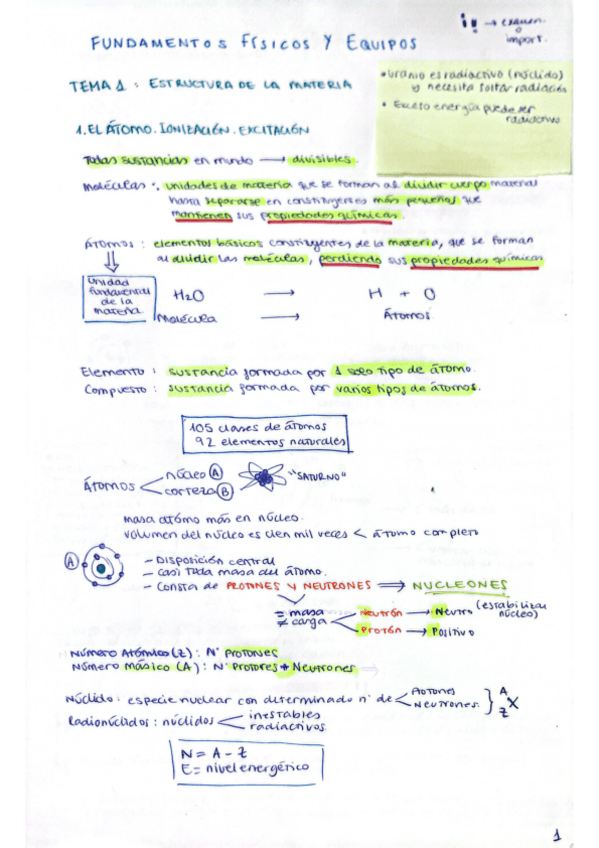 ¡! → examen
o
import.
FUNDAMENTOS FÍSICOS Y EQUIPOS
TEMA 1 : ESTRUCTURA DE LA MATERIA
• Uranio es radiactivo (núclido)
y necesita soltar radiación
• Exceso energía puede ser
radiactivo
1. EL ÁTOMO. IONIZACIÓN. EXCITACIÓN
Todas sustancias en mundo → divisibles.
Moléculas : unidades de materia que se forman al dividir cuerpo material
hasta separarse en constituyentes más pequeños que
mantienen sus propiedades químicas.
ÁTOMOS : elementos básicos constituyentes de la materia, que se forman
al dividir las moléculas, perdiendo sus propiedades químicas
Unidad
fundamental
de la
materia
H2O → H + O
Molécula Átomos
Elemento : sustancia formada por 1 solo tipo de átomo.
Compuesto : sustancia formada por varios tipos de átomos.
105 clases de átomos
92 elementos naturales
ÁTOMOS
núcleo (A)
corteza (B)
"SATURNO"
masa átomo más en núcleo.
volumen del núcleo es cien mil veces < átomo completo
(A)
- Disposición central
- casi toda masa del átomo.
- Consta de PROTONES Y NEUTRONES ⇒ NUCLEONES
= masa
≠ carga
NEUTRÓN → Neutro (estabilizar núcleo)
PROTÓN → Positivo
Número Atómico (Z) : Nº PROTONES
Número másico (A) : Nº Protones + Neutrones
Núclido : especie nuclear con determinado nº de
Protones
Neutrones
} A
Z X
Radionúclidos : núclidos
inestables
radiactivos.
N = A - Z
E = nivel energético
1